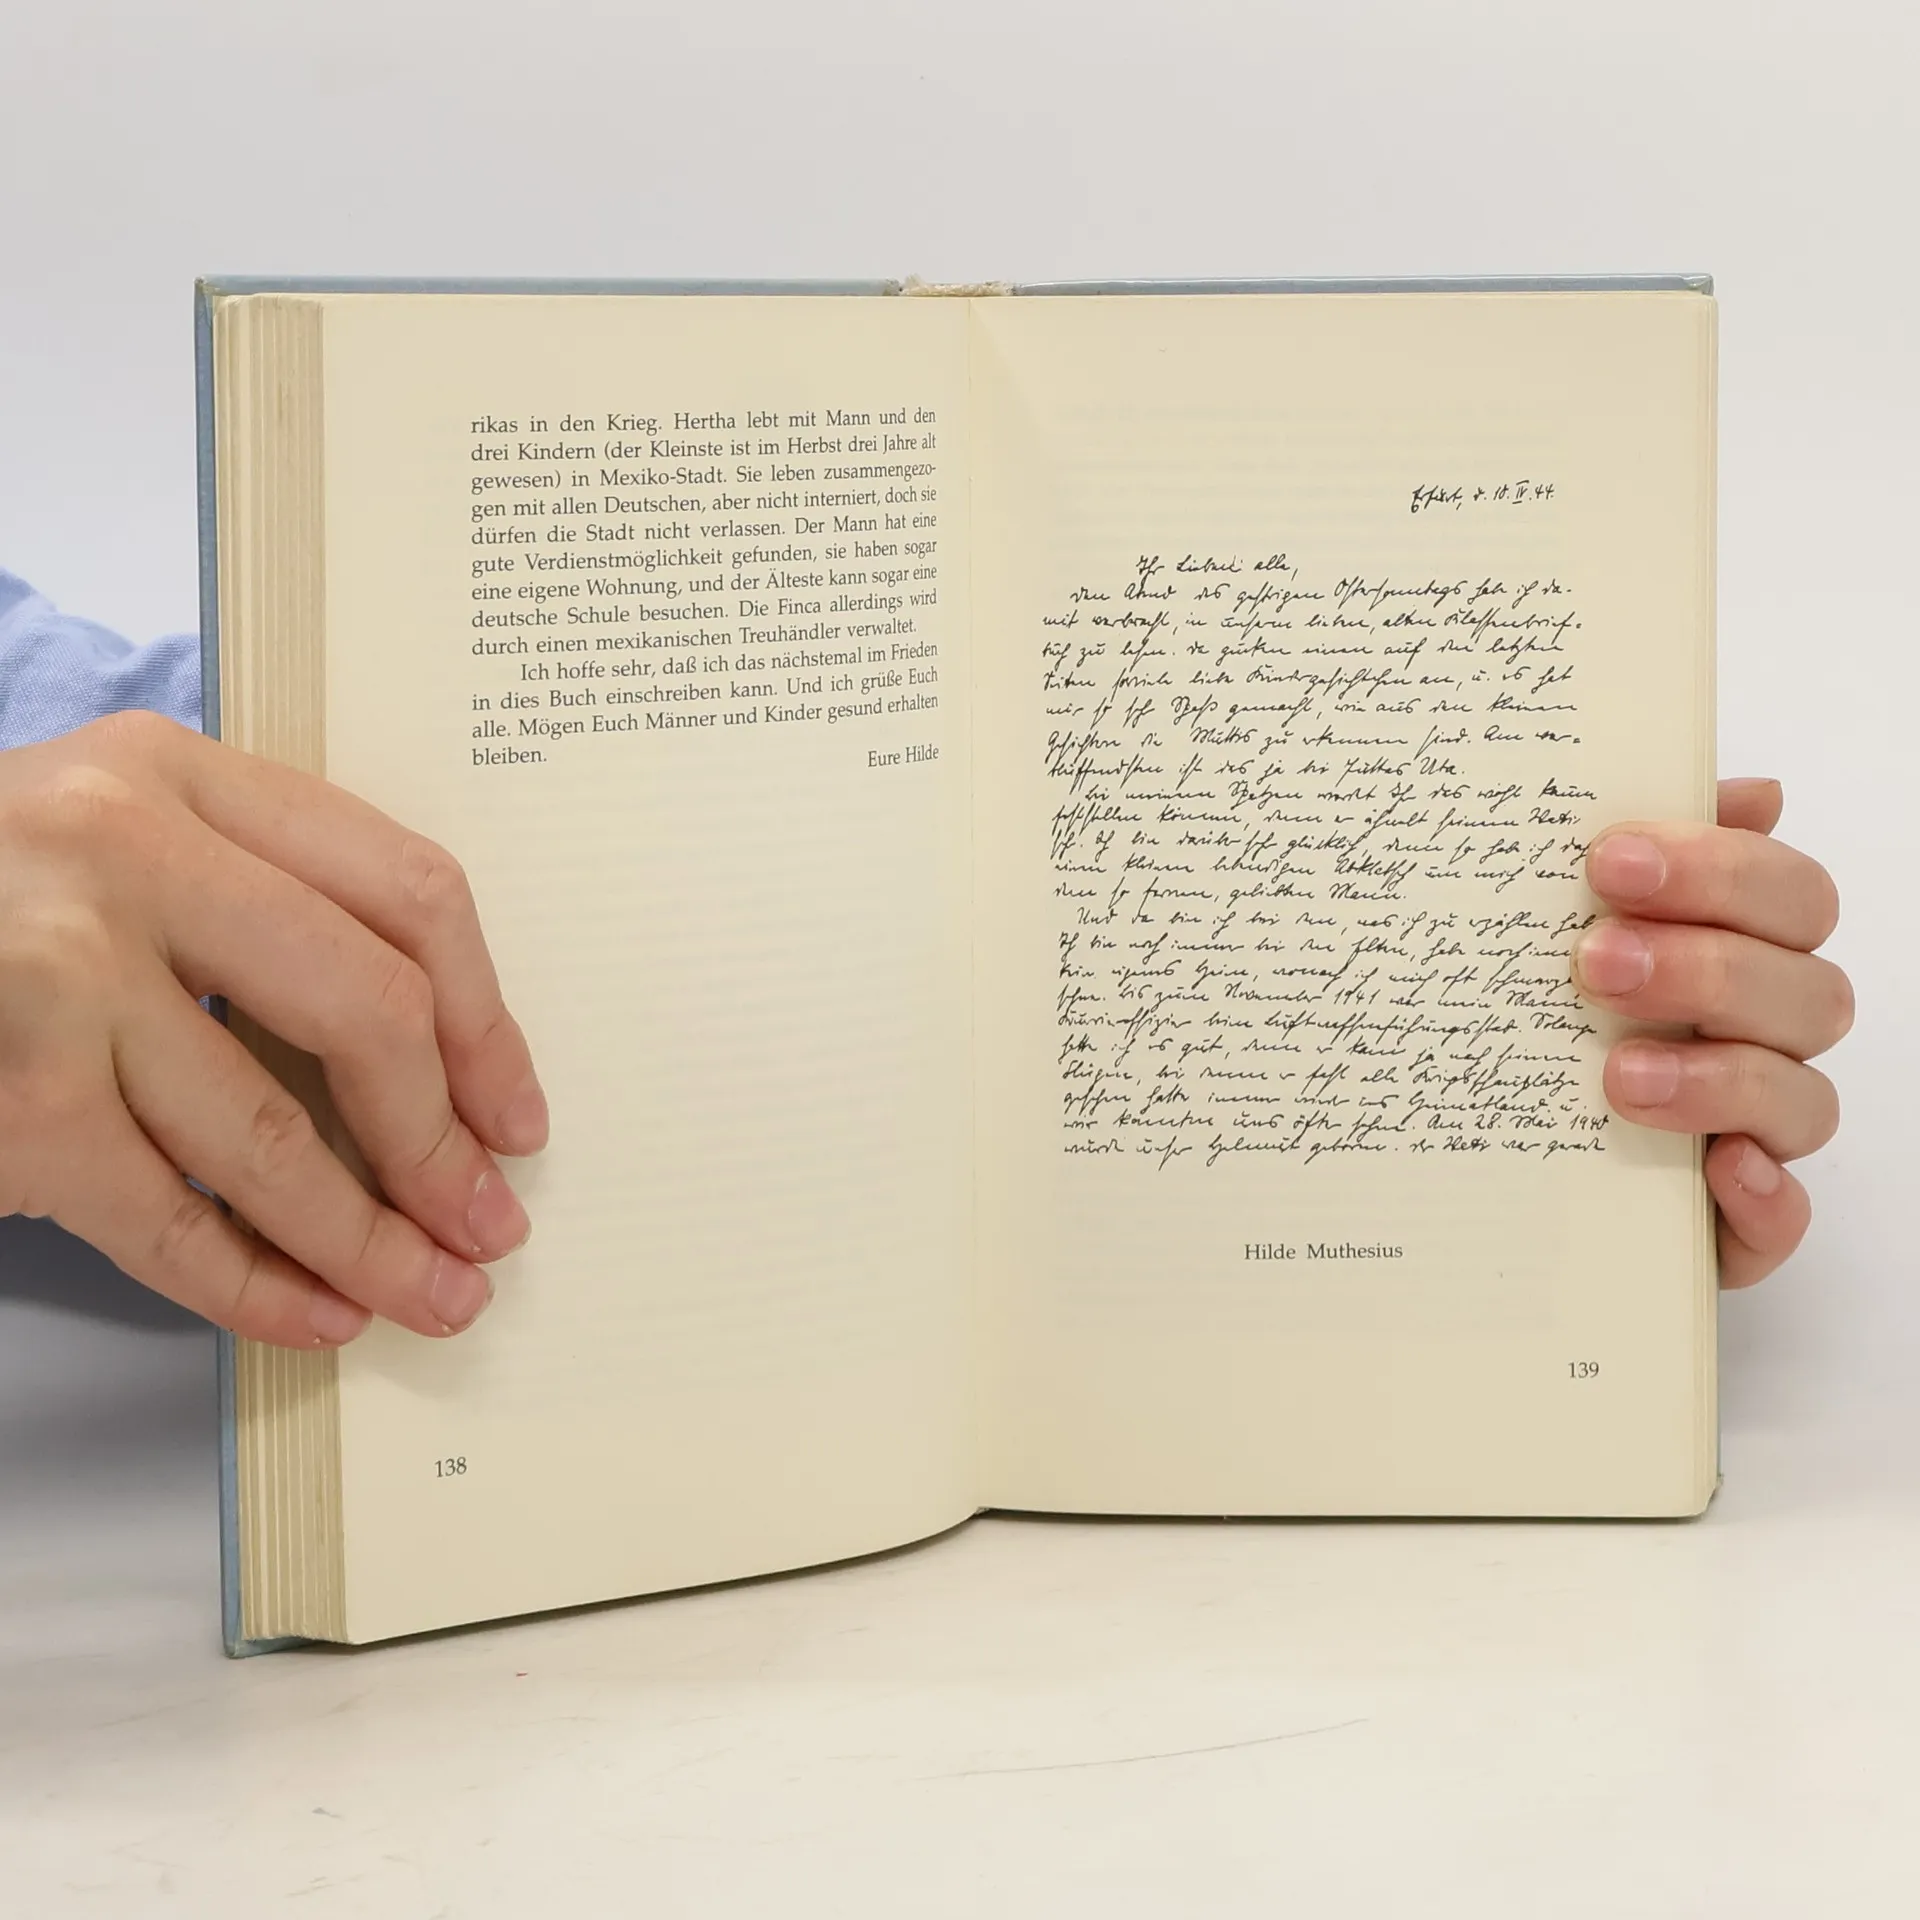 rikas in den Krieg. Hertha lebt mit Mann und den
drei Kindern (der Kleinste ist im Herbst drei Jahre alt
gewesen) in Mexiko-Stadt. Sie leben zusammengezo-
gen mit allen Deutschen, aber nicht interniert, doch sie
dürfen die Stadt nicht verlassen. Der Mann hat eine
gute Verdienstmöglichkeit gefunden, sie haben sogar
eine eigene Wohnung, und der Älteste kann sogar eine
deutsche Schule besuchen. Die Finca allerdings wird
durch einen mexikanischen Treuhändler verwaltet.
Ich hoffe sehr, daß ich das nächstemal im Frieden
in dies Buch einschreiben kann. Und ich grüße Euch
alle. Mögen Euch Männer und Kinder gesund erhalten
bleiben.
Eure Hilde
138
Erfurt, d. 10. IV. 44.
Ihr Lieben alle,
den Abend des gestrigen Ostersonntags hab ich da-
mit verbracht, in unserm lieben, alten Klassenbrief-
buch zu lesen. Da gucken einen auf den letzten
Seiten soviele liebe Kindergesichtchen an, u. es hat
mir so sehr Spaß gemacht, wie aus den kleinen
Gesichtern die Muttis zu erkennen sind. Am ver-
blüffendsten ist das ja bei Juttas Uta.
Bei meinem Spatzen werdet Ihr das wohl kaum
feststellen können, denn er ähnelt seinem Vati
sehr. Ich bin darüber sehr glücklich, denn so hab ich doch
einen kleinen lebendigen Abklatsch um mich von
dem so fernen, geliebten Mann.
Und da bin ich bei dem, was ich zu erzählen hab
Ich bin noch immer bei den Eltern, habe noch immer
kein eigenes Heim, wonach ich mich oft
sehne. Bis zum November 1941 war mein Mann
Kurieroffizier beim Luftwaffenführungsstab. Solange
hatte ich es gut, denn er kam ja nach seinen
Flügen, bei denen er fast alle Kriegsschauplätze
gesehen hatte immer wieder ins Heimatland, u.
wir konnten uns öfter sehen. Am 28. Mai 1940
wurde unser Helmut geboren. Der Vati war gerade
Hilde Muthesius
139